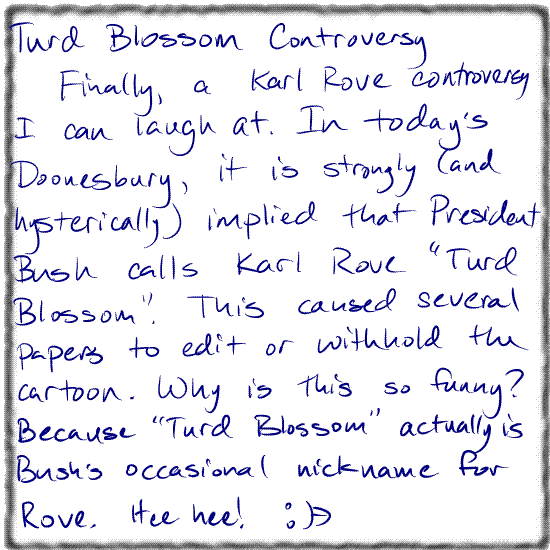 Turd Blossom Controversy
Finally, a Karl Rove controversy
I can laugh at. In today's
Doonesbury, it is strongly (and
hysterically) implied that President
Bush calls Karl Rove "Turd
Blossom". This caused several
papers to edit or withhold the
cartoon. Why is this so funny?
Because "Turd Blossom" actually is
Bush's occasional nickname for
Rove. Hee hee! :)